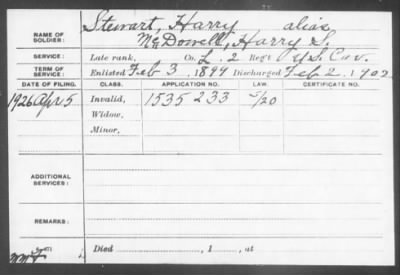 Stewart, Harry alias
NAME OF SOLDIER: McDowell, Harry S.
SERVICE: Late rank, Co. L. 2 Reg't U.S. Cav.
TERM OF SERVICE: Enlisted Feb 3, 1899 Discharged Feb 2, 1902
DATE OF FILING. CLASS. APPLICATION NO. LAW. CERTIFICATE NO.
1926 Apr 5 Invalid, 1535 233 5/20
Widow,
Minor,
ADDITIONAL SERVICES:
REMARKS:
Died , 1 , at